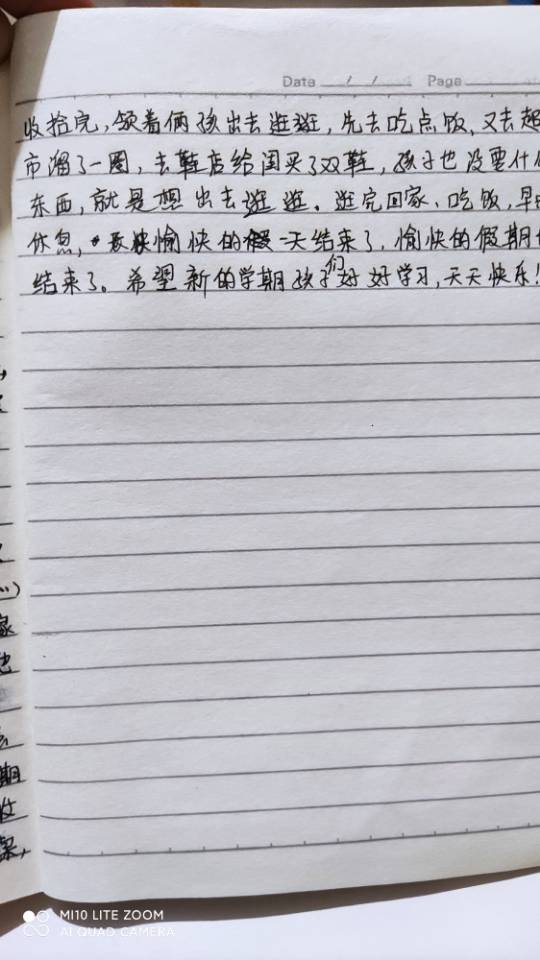 Date / / Page
收拾完,领着俩孩出去逛逛,先去吃点饭,又去超
市溜了一圈,去鞋店给闺买了双鞋,孩子也没要什
东西,就是想出去逛逛。逛完回家、吃饭,早
休息,愉快的一天结束了,愉快的假期也
结束了。希望新的学期孩子们好好学习,天天快乐!
家
也
期
收
MI10 LITE ZOOM
AI QUAD CAMERA